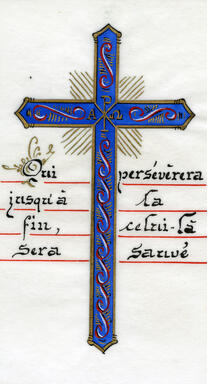 A Ω
Qui persévèrera
jusqu'à la
fin, celui-là
sera sauvé